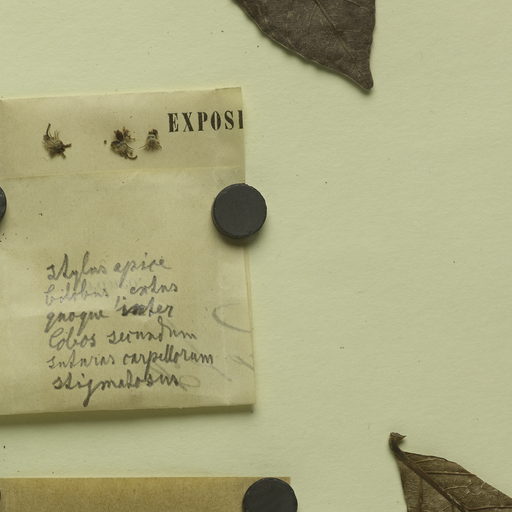 EXPOSI
stylus apice
bilobus extus
quoque inter
lobos secundum
suturas carpellorum
stigmatosus